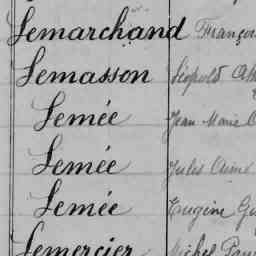 Lemarchand Françoi
Lemasson Léopold
Lemée Jean Marie
Lemée Jules Aimé
Lemée Eugène
Lemercier Michel